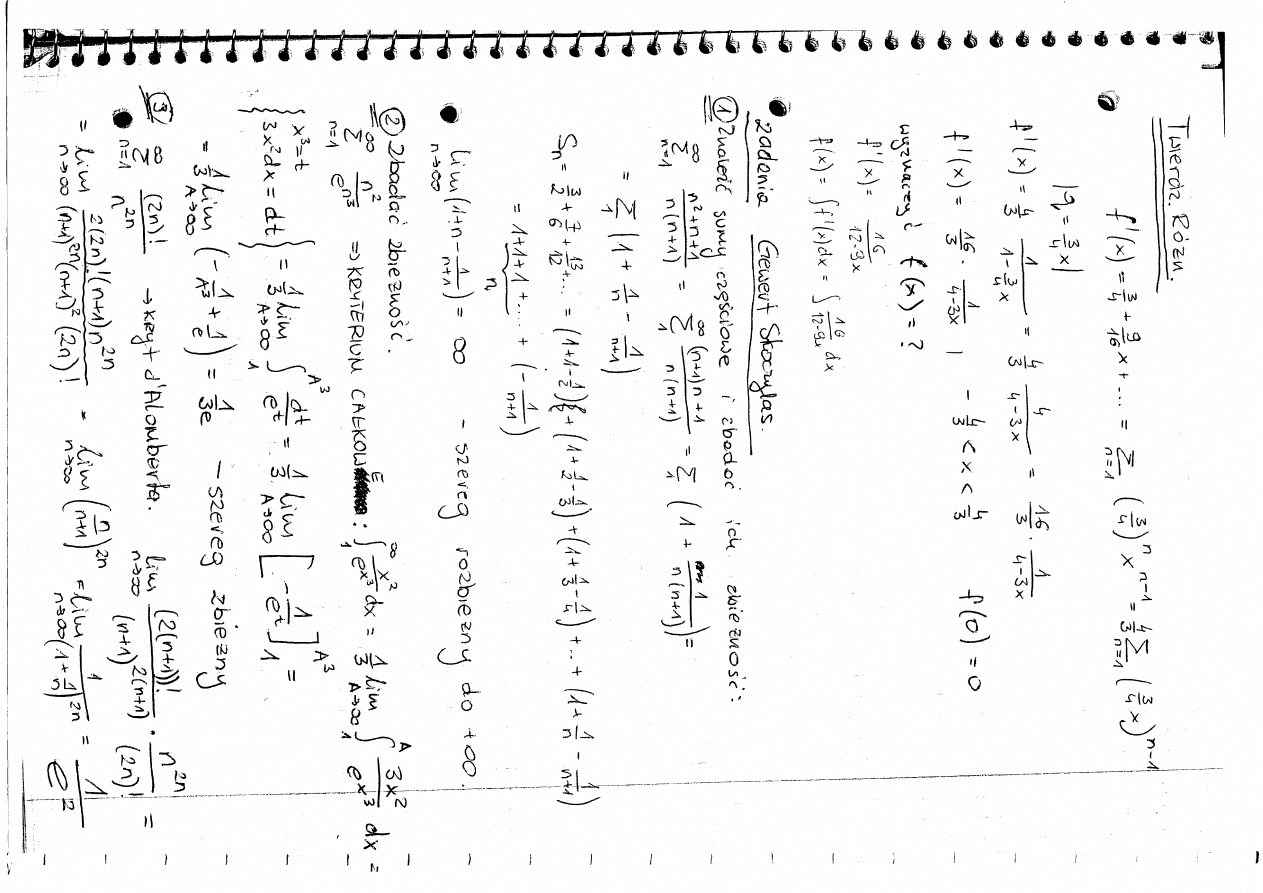 Twierdz. Różn.
f'(x) = 3/4 + 9/16 x + .... = Σ n=1 (3/4)^n x^(n-1) = 4/3 Σ n=1 (3/4 x)^(n-1)
|q = 3/4 x|
f'(x) = 4/3 1/(1 - 3/4 x) = 4/3 4/(4-3x) = 16/3 · 1/(4-3x)
f'(x) = 16/3 · 1/(4-3x) , - 4/3 < x < 4/3 f(0) = 0
wyznaczyć f(x) = ?
f'(x) = 16/(12-9x)
f(x) = ∫ f'(x) dx = ∫ 16/(12-9x) dx
Zadania Gewert Skoczylas.
① Znaleźć sumy częściowe i zbadać ich zbieżność:
∞ Σ n=1 (n²+n+1)/(n(n+1)) = ∞ Σ 1 ((n+1)n+1)/(n(n+1)) = Σ 1 (1 + 1/(n(n+1))) =
= Σ 1 (1 + 1/n - 1/(n+1))
Sn = 3/2 + 7/6 + 13/12 + ... = (1+1-1/2) + (1+1/2-1/3) + (1+1/3-1/4) + .. + (1+1/n - 1/(n+1))
= 1+1+1+.... + (-1/(n+1))
n
lim n→∞ (1+n - 1/(n+1)) = ∞ - szereg rozbieżny do +∞.
② Zbadać zbieżność.
∞ Σ n=1 n²/e^(n³) ⇒ KRYTERIUM CAŁKOWE : ∞ ∫ 1 x²/e^(x³) dx = 1/3 lim A→∞ A ∫ 1 3x²/e^(x³) dx =
{ x³ = t
3x²dx = dt } = 1/3 lim A→∞ A³ ∫ 1 dt/e^t = 1/3 lim A→∞ [ - 1/e^t ] A³ 1 =
= 1/3 lim A→∞ (- 1/A³ + 1/e) = 1/3e - szereg zbieżny
③ ∞ Σ n=1 (2n)!/n^(2n) → kryt d'Alomberta. lim n→∞ (2(n+1))!/(n+1)^(2(n+1)) · n^(2n)/(2n)! =
= lim n→∞ 2(2n)!(n+1)n^(2n)/((n+1)^(2n)(n+1)²(2n)!) = lim n→∞ (n/(n+1))^(2n) = lim n→∞ 1/(1+1/n)^(2n) = 1/e²